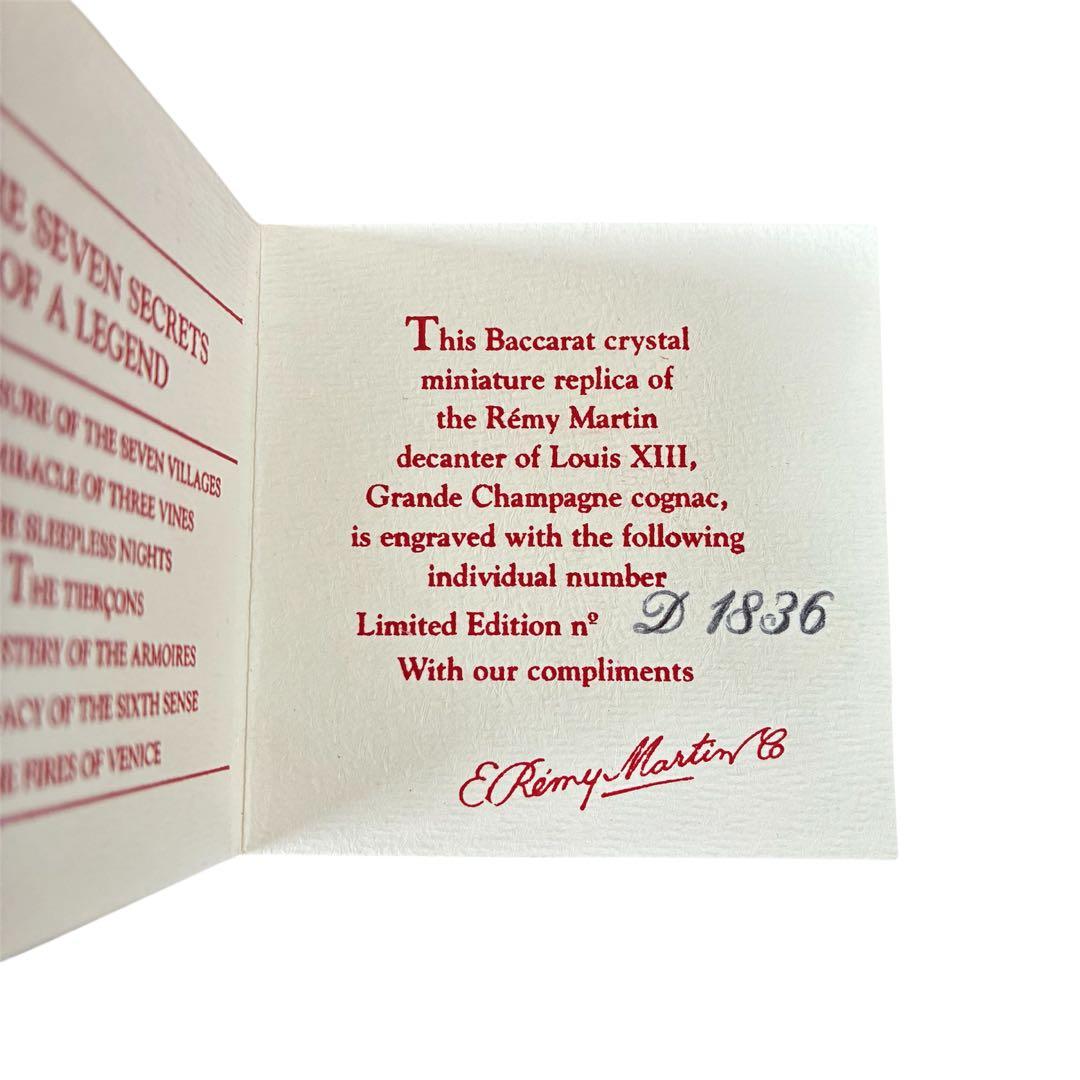 SEVEN SECRETS
OF A LEGEND
OF THE SEVEN VILLAGES
MIRACLE OF THREE VINES
SLEEPLESS NIGHTS
THE TIERÇONS
OF THE ARMOIRES
OF THE SIXTH SENSE
FIRES OF VENICE
This Baccarat crystal
miniature replica of
the Rémy Martin
decanter of Louis XIII,
Grande Champagne cognac,
is engraved with the following
individual number
Limited Edition nº D 1836
With our compliments
E. Rémy Martin & Co